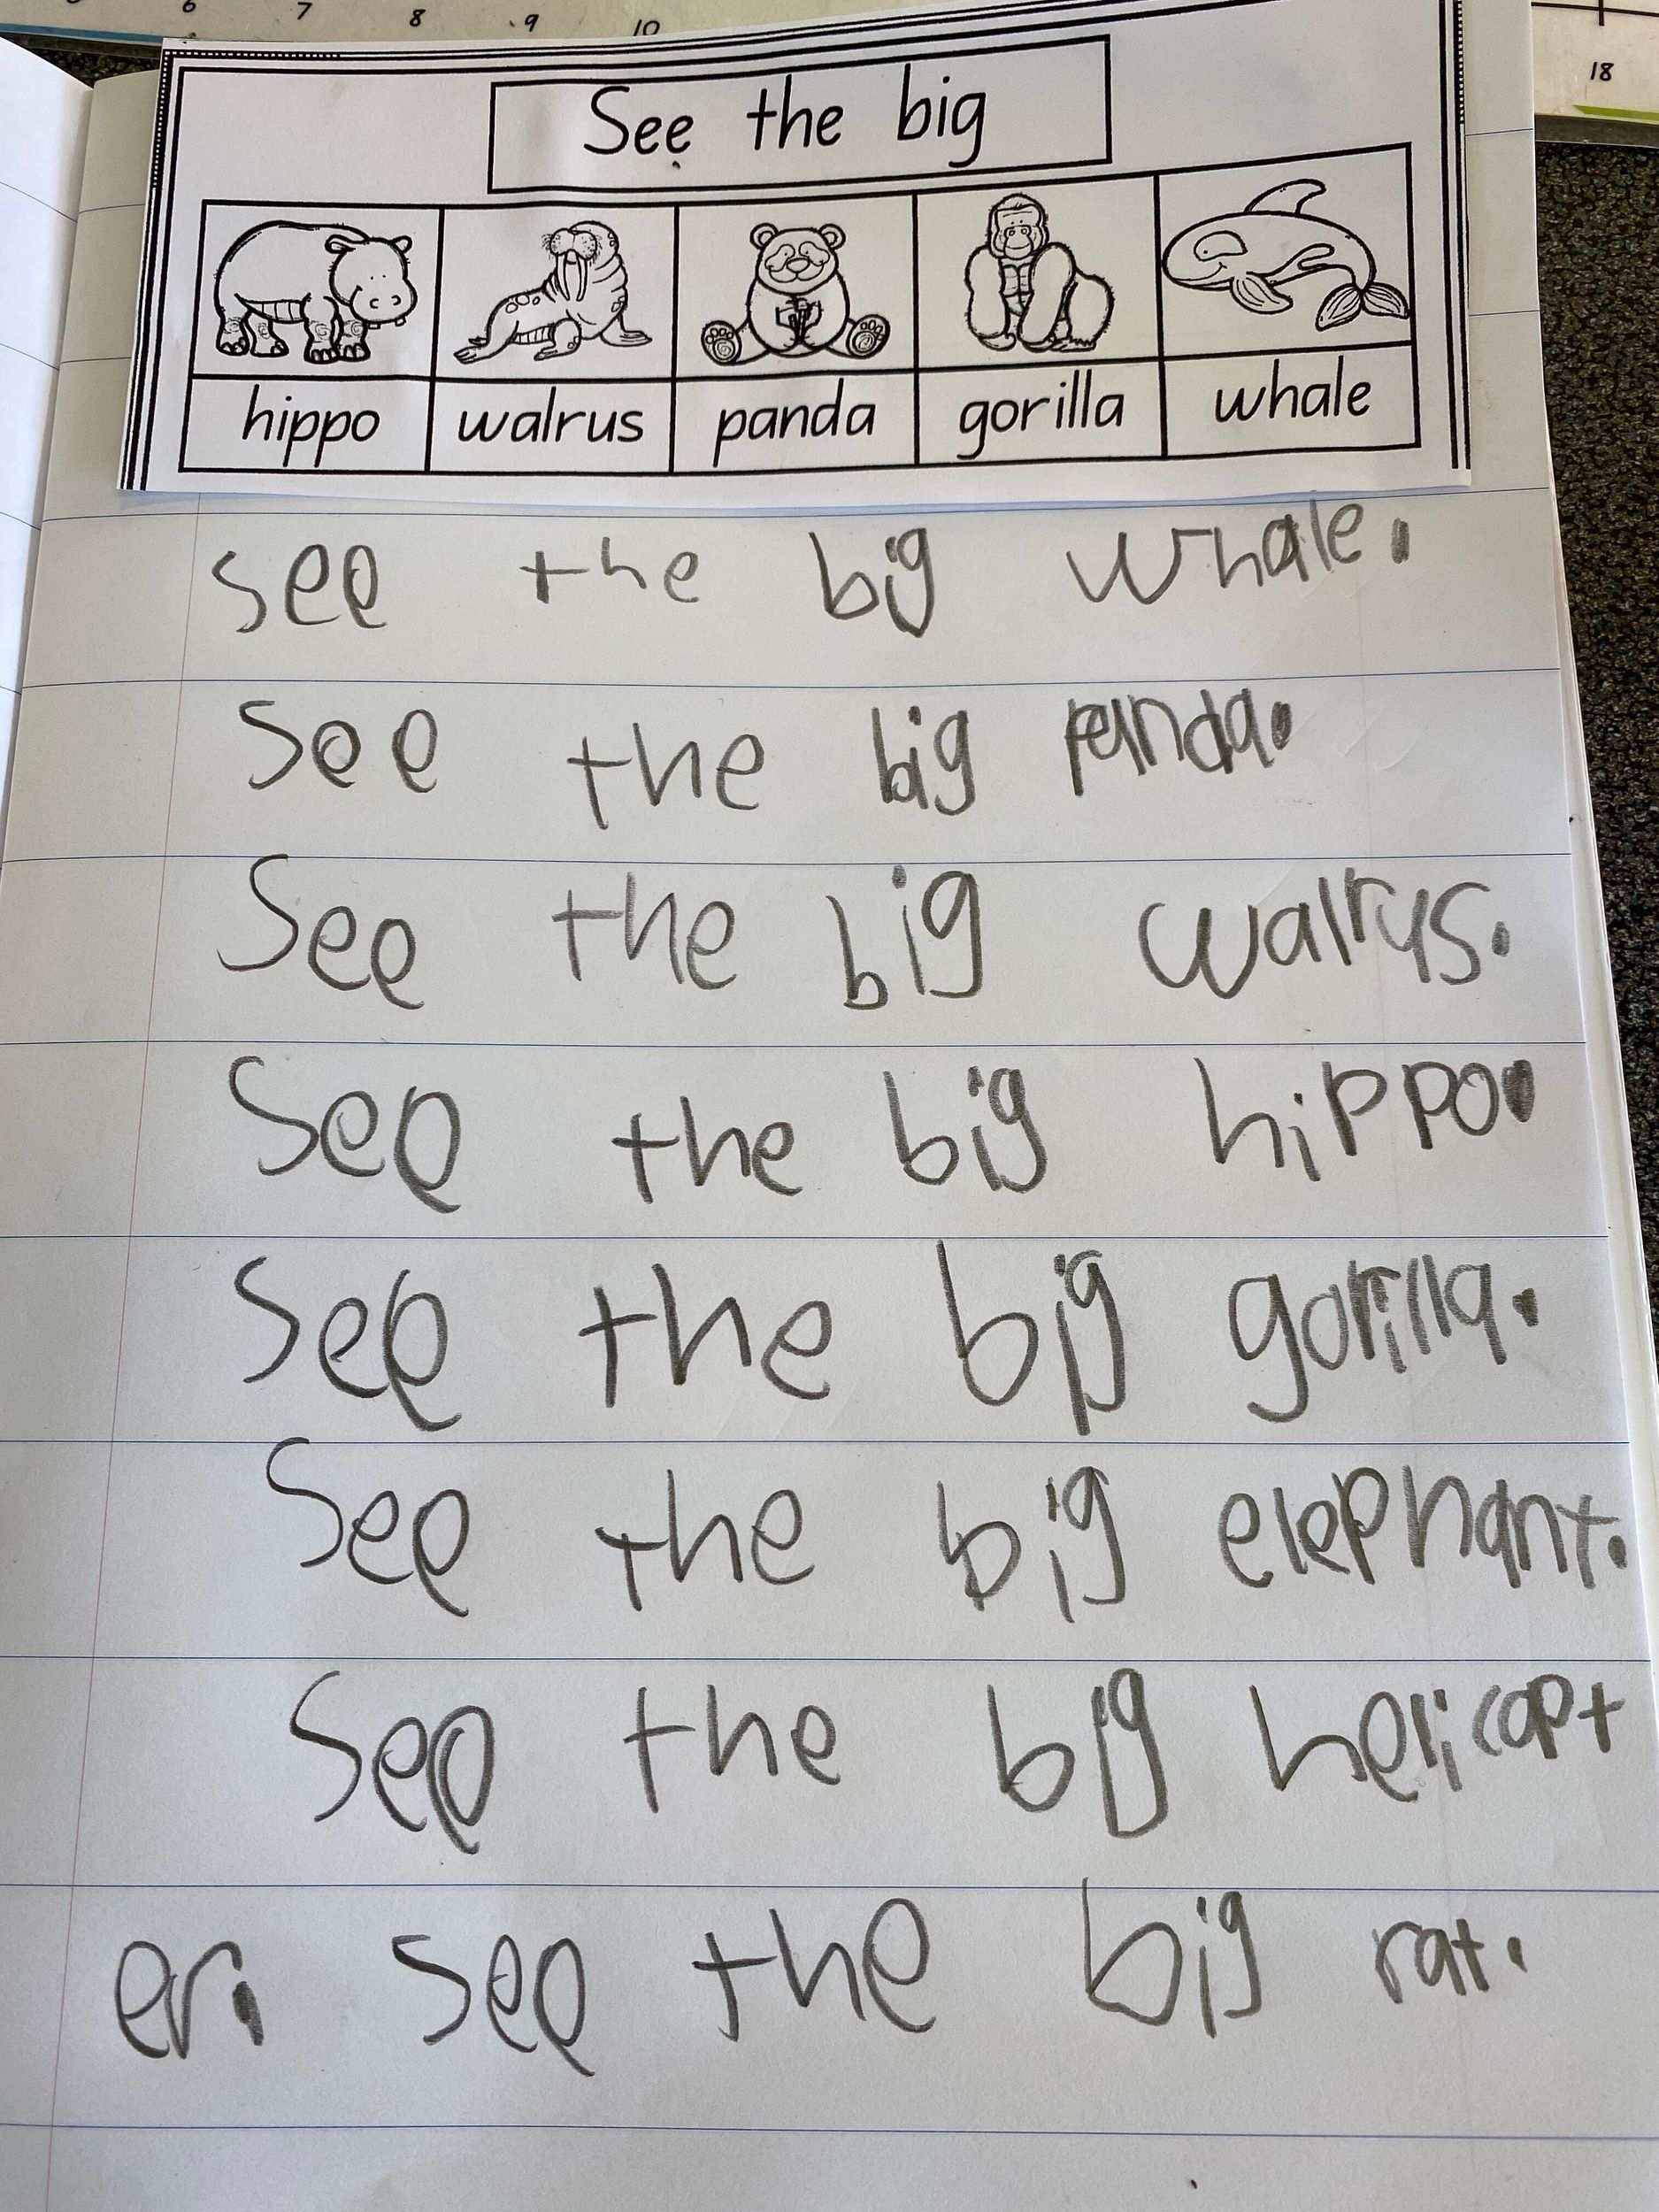 6 7 8 9 10
18
See the big
hippo walrus panda gorilla whale
see the big whale.
See the big panda.
See the big walrus.
See the big hippo.
See the big gorilla.
See the big elephant.
See the big helicopt
er. see the big rat.